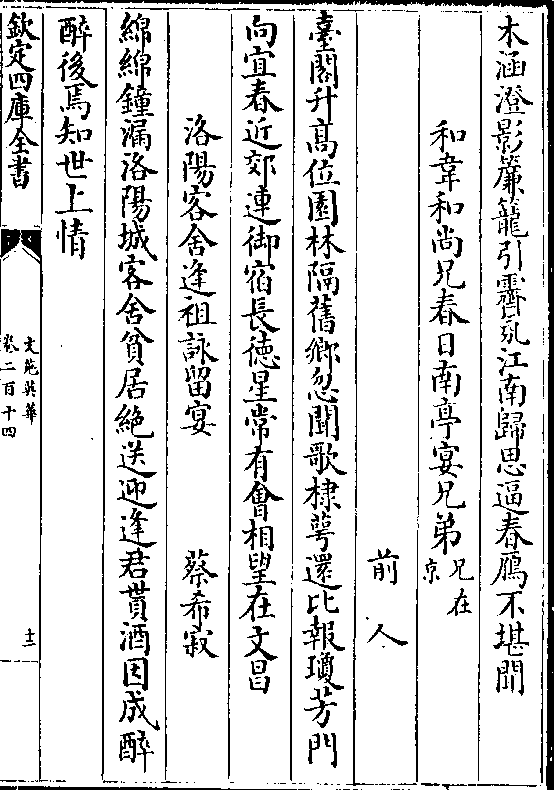 木涵澄影簾籠引霽氛江南歸思逼春鴈不堪聞
和韋和尚兄春日南亭宴兄弟兄在京
前人
臺閣升髙位園林隔舊鄉忽聞歌棣蕚還比報瓊芳門
向宜春近郊連御宿長徳星常有㑹相望在文昌
洛陽客舍逢祖詠留宴　蔡希寂
綿綿鐘漏洛陽城客舍貧居絶送迎逢君貰酒因成醉
醉後焉知世上情
欽定四庫全書
文苑英華
卷二百十四
十二